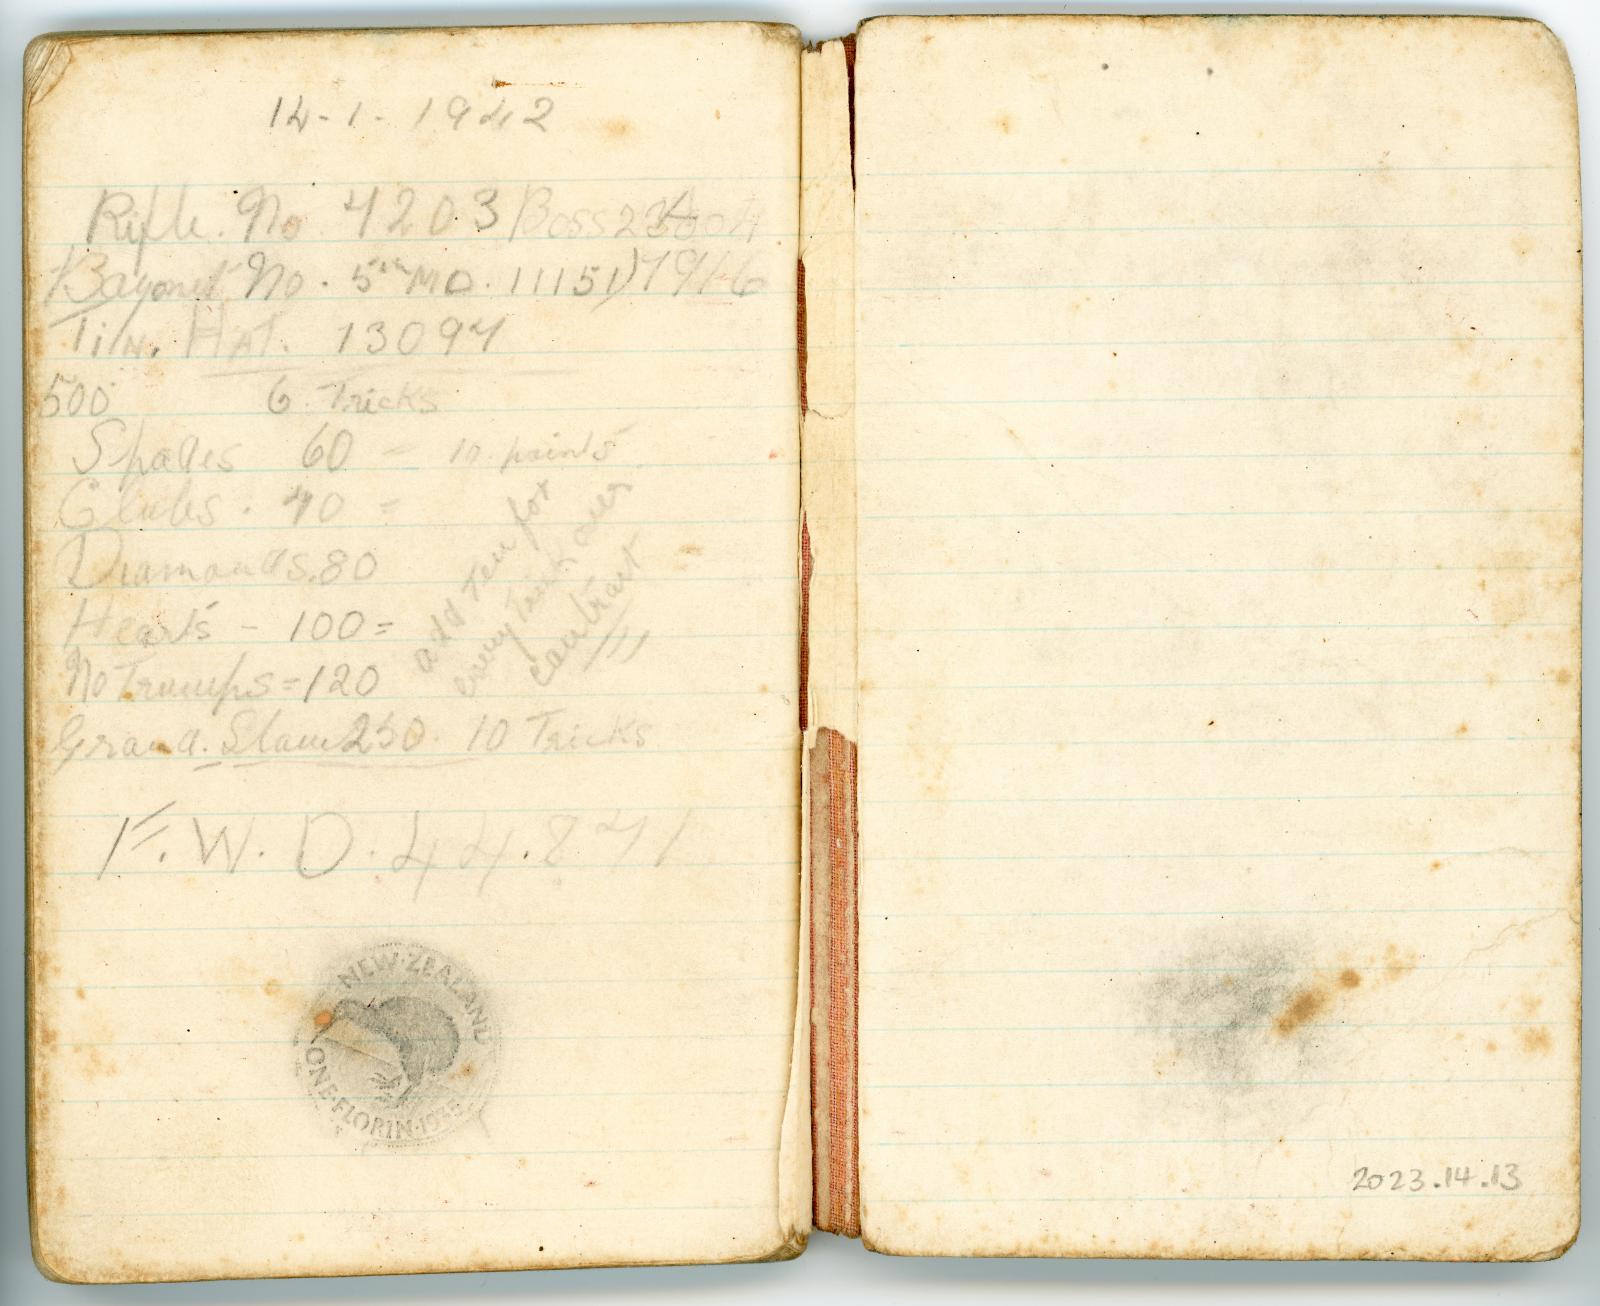 14-1-1942
Rifle. No 4203 Boss
Bayonet No. 5th MD. 11151) 7916
Tin. Hat. 13094
500 6 Tricks
Spades 60 = 10 points
Clubs. 40 =
Diamonds. 80
Hearts - 100 =
No Trumps = 120
Grand. Slam 250. 10 Tricks
add ten for
every trick over
contract
F. W. D. 44.871
NEW·ZEALAND
ONE·FLORIN·1935
2023.14.13